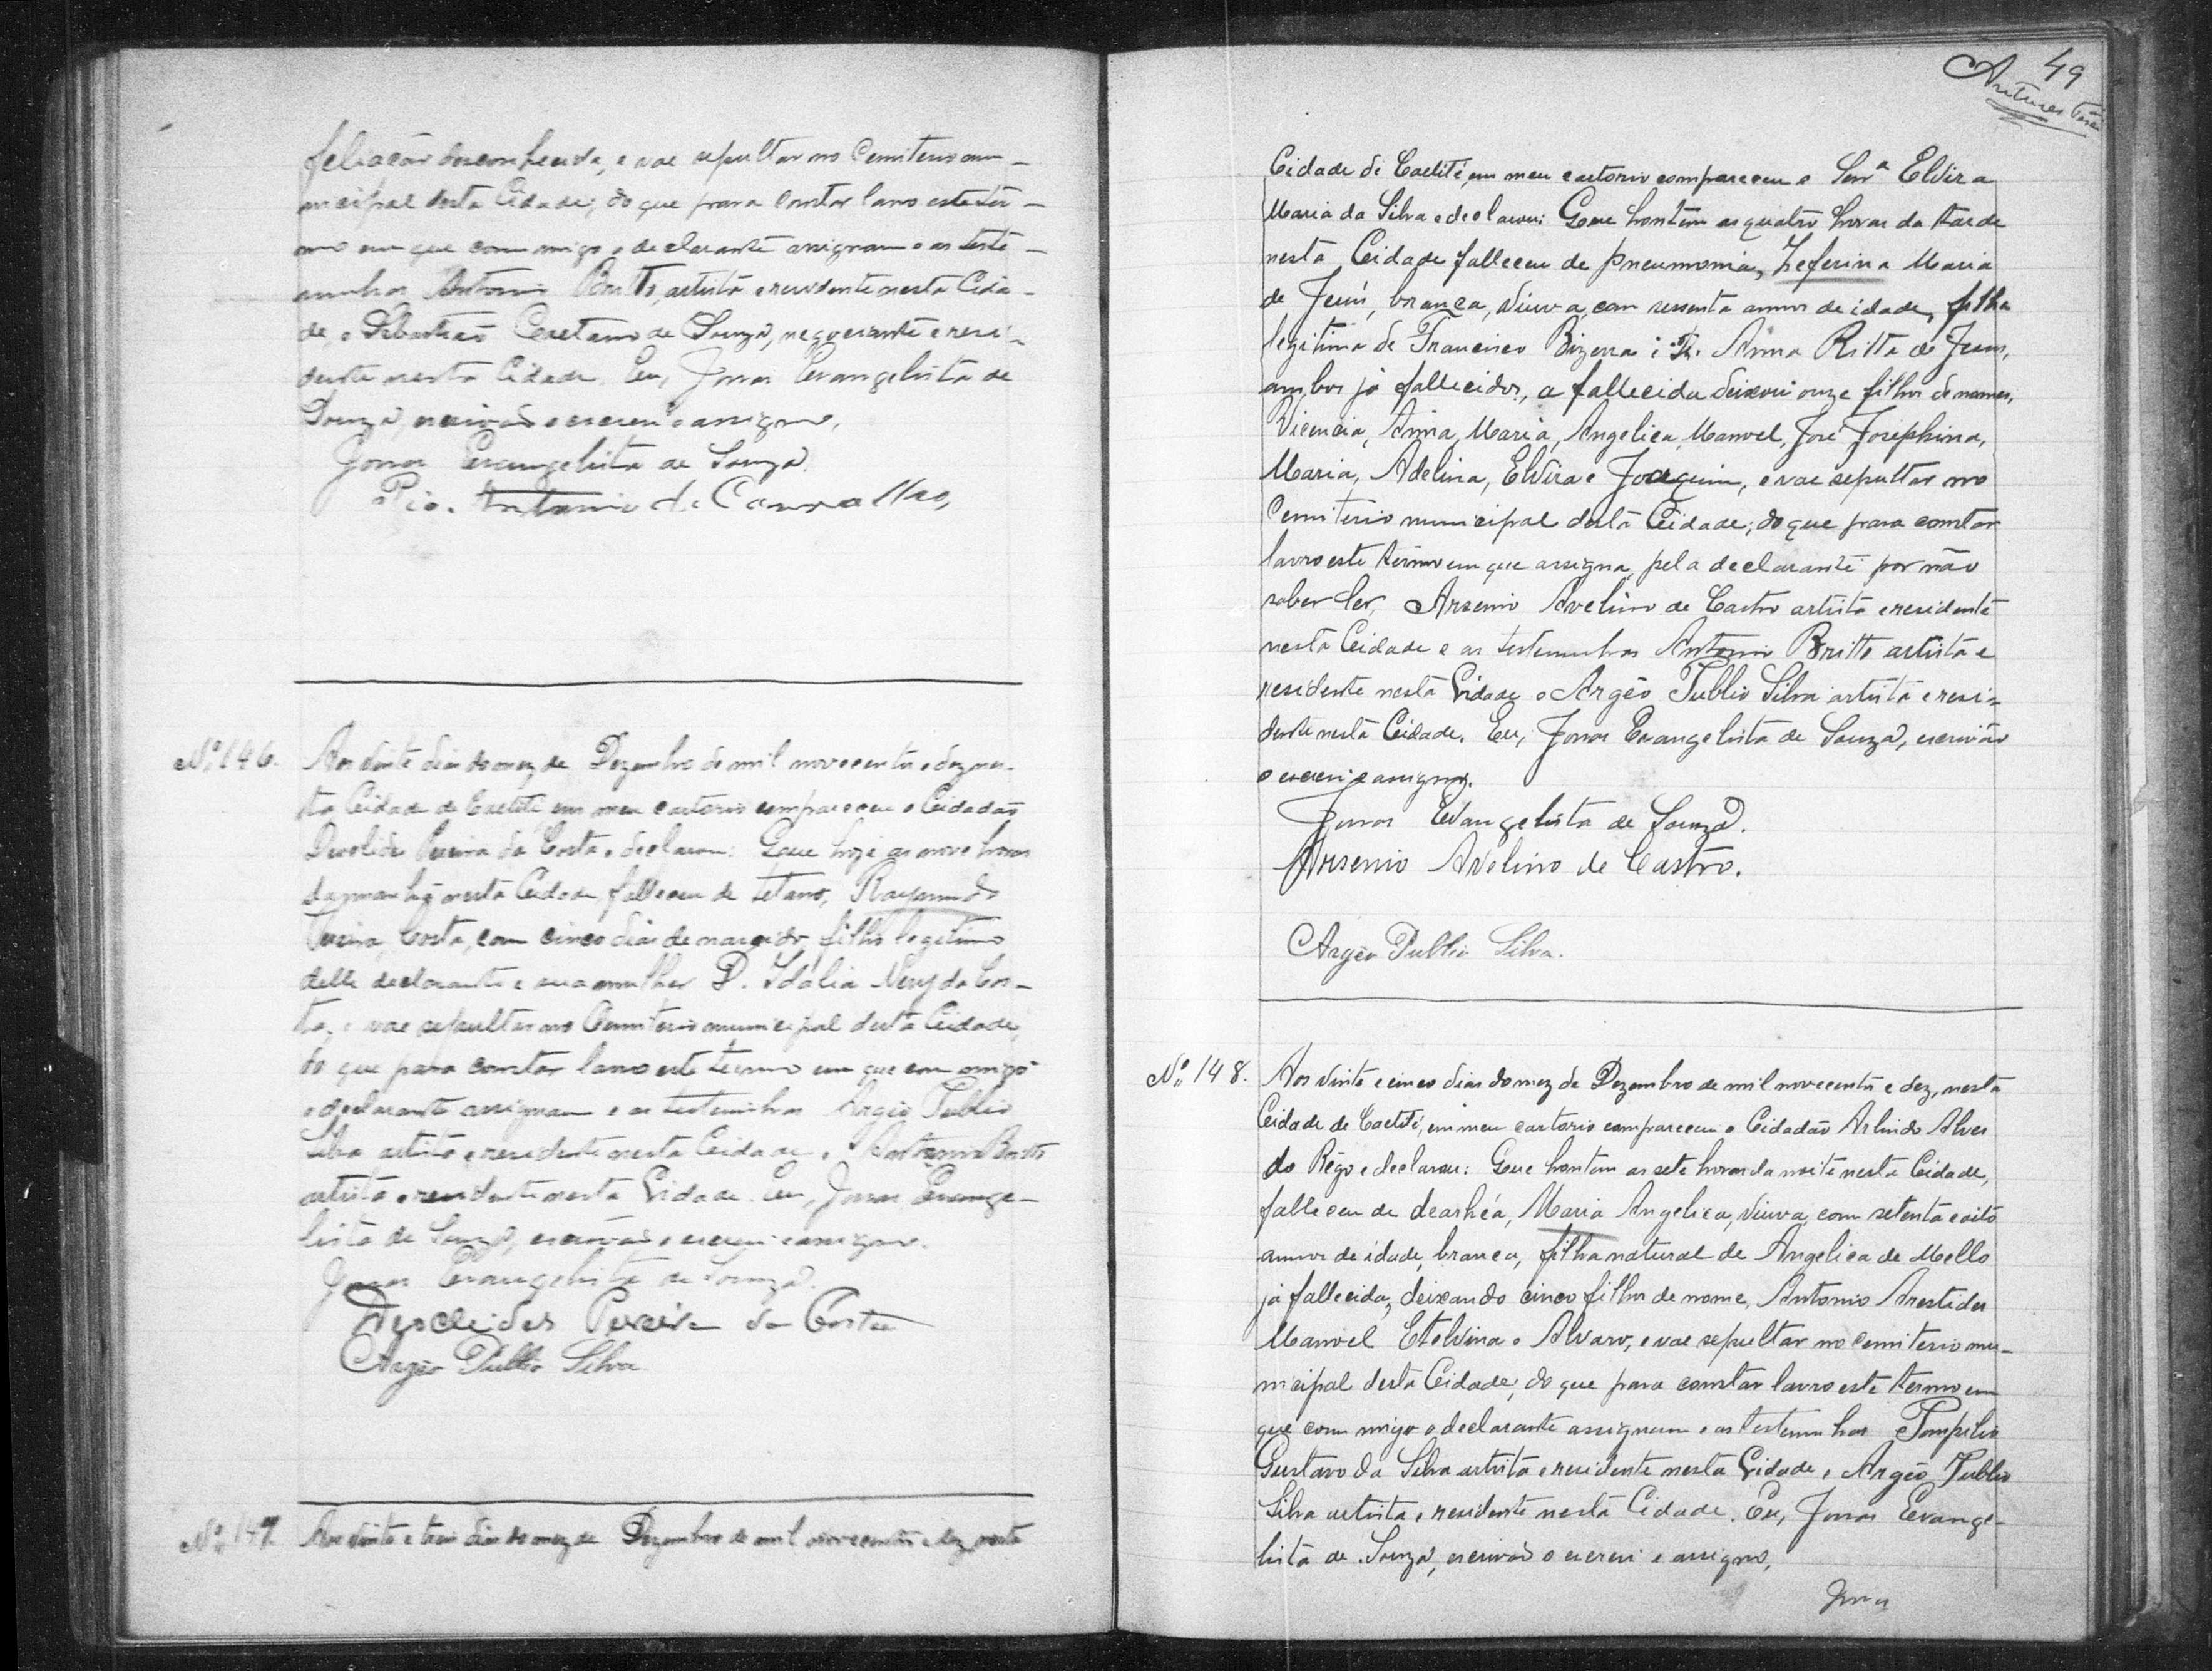 feliação desconhecida, e vae sepultar no Cemiterio mu-
nicipal desta Cidade; do que para constar lavro este ter-
mo em que commigo o declarante assignam e as teste-
munhas Antonio Britto, artista e residente nesta Cida-
de, e Sebastião Caetano de Souza, negociante e resi-
dente nesta Cidade. Eu, Jonas Evangelista de
Souza, escrivão o escrevi e assigno,
Jonas Evangelista de Souza.
Pio Antonio de Carvalho,
Nº 146. Aos vinte dias do mez de Dezembro de mil novecentos e dez nes-
ta Cidade de Caetité, em meu cartorio compareceu o Cidadão
Pereira da Costa e declarou: Que hoje as nove horas
da manhã nesta Cidade falleceu de tetano, Raymundo
Pereira Costa, com cinco dias de nascido, filho legitimo
delle declarante e sua mulher D. Idalia Nery da Cos-
ta, e vae sepultar no Cemiterio municipal desta Cidade,
do que para constar lavro este termo em que commigo
o declarante assignam e as testemunhas Argêo Publio
Silva artista e residente nesta Cidade e Antonio Britto
artista e residente nesta Cidade. Eu, Jonas Evange-
lista de Souza, escrivão o escrevi e assigno.
Jonas Evangelista de Souza.
Pereira da Costa
Argêo Publio Silva
Nº 147. Aos vinte e tres dias do mez de Dezembro de mil novecentos e dez nesta
49
Cidade de Caetité, em meu cartorio compareceu a Senrª Elvira
Maria da Silva e declarou: Que hontem as quatro horas da tarde
nesta Cidade falleceu de pneumonia, Zeferina Maria
de Jesus, branca, viuva, com sessenta annos de idade, filha
legitima de Francisco Bizerra e D. Anna Ritta de Jesus,
ambos já fallecidos, a fallecida deixou onze filhos de nomes,
Vicencia, Anna, Maria, Angelica, Manoel, José Josephina,
Maria, Adelina, Elvira e Joaquim, e vae sepultar no
Cemiterio municipal desta Cidade; do que para constar
lavro este termo em que assigna, pela declarante por não
saber ler, Arsenio Avelino de Castro artista e residente
nesta Cidade e as testemunhas Antonio Britto artista e
residente nesta Cidade e Argêo Publio Silva artista e resi-
dente nesta Cidade. Eu, Jonas Evangelista de Souza, escrivão
o escrevi e assigno.
Jonas Evangelista de Souza.
Arsenio Avelino de Castro.
Argêo Publio Silva.
Nº 148. Aos vinte e cinco dias do mez de Dezembro de mil novecentos e dez, nesta
Cidade de Caetité, em meu cartorio compareceu o Cidadão Arlindo Alves
do Rêgo e declarou: Que hontem as sete horas da noite nesta Cidade,
falleceu de dearhéa, Maria Angelica, viuva, com setenta e oito
annos de idade, branca, filha natural de Angelica de Mello
já fallecida, deixando cinco filhos de nome, Antonio Arestides
Manoel Etelvina e Alvaro, e vae sepultar no cemiterio mu-
nicipal desta Cidade; do que para constar lavro este termo em
que commigo o declarante assignam e as testemunhas Pompilio
Gustavo da Silva artista e residente nesta Cidade, e Argêo Publio
Silva artista e residente nesta Cidade. Eu, Jonas Evange-
lista de Souza, escrivão o escrevi e assigno,
Jonas